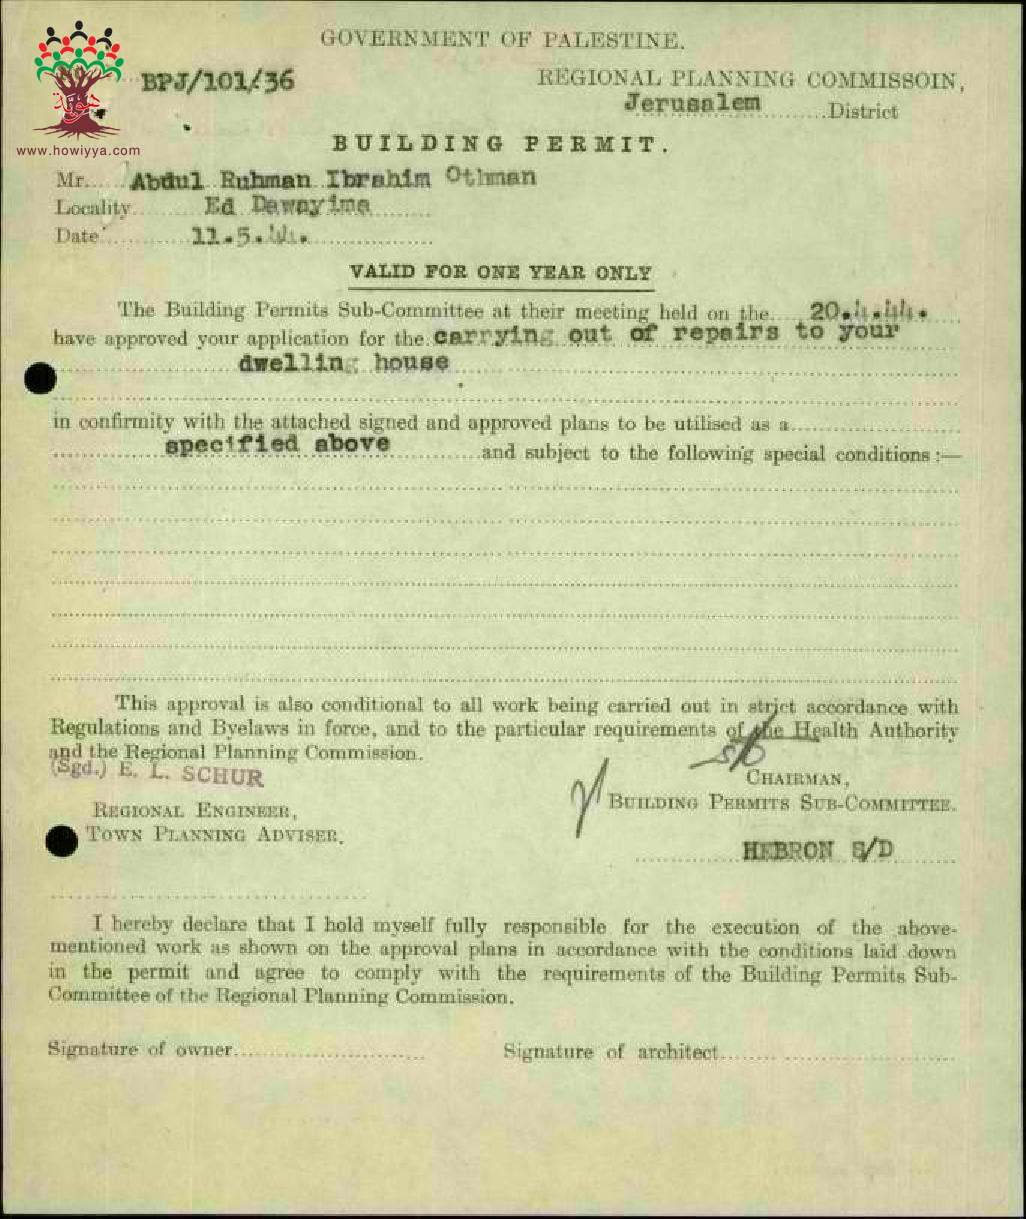 GOVERNMENT OF PALESTINE.
BPJ/101/36
REGIONAL PLANNING COMMISSOIN,
Jerusalem District
www.howiyya.com
BUILDING PERMIT.
Mr. Abdul Ruhman Ibrahim Othman
Locality Ed Dawayima
Date 11.5.44.
VALID FOR ONE YEAR ONLY
The Building Permits Sub-Committee at their meeting held on the 20.4.44.
have approved your application for the carrying out of repairs to your
dwelling house
in confirmity with the attached signed and approved plans to be utilised as a
specified above and subject to the following special conditions :—
This approval is also conditional to all work being carried out in strict accordance with
Regulations and Byelaws in force, and to the particular requirements of the Health Authority
and the Regional Planning Commission.
(Sgd.) E. L. SCHUR
CHAIRMAN,
REGIONAL ENGINEER,
BUILDING PERMITS SUB-COMMITTEE.
TOWN PLANNING ADVISER.
HEBRON S/D
I hereby declare that I hold myself fully responsible for the execution of the above-
mentioned work as shown on the approval plans in accordance with the conditions laid down
in the permit and agree to comply with the requirements of the Building Permits Sub-
Committee of the Regional Planning Commission.
Signature of owner
Signature of architect